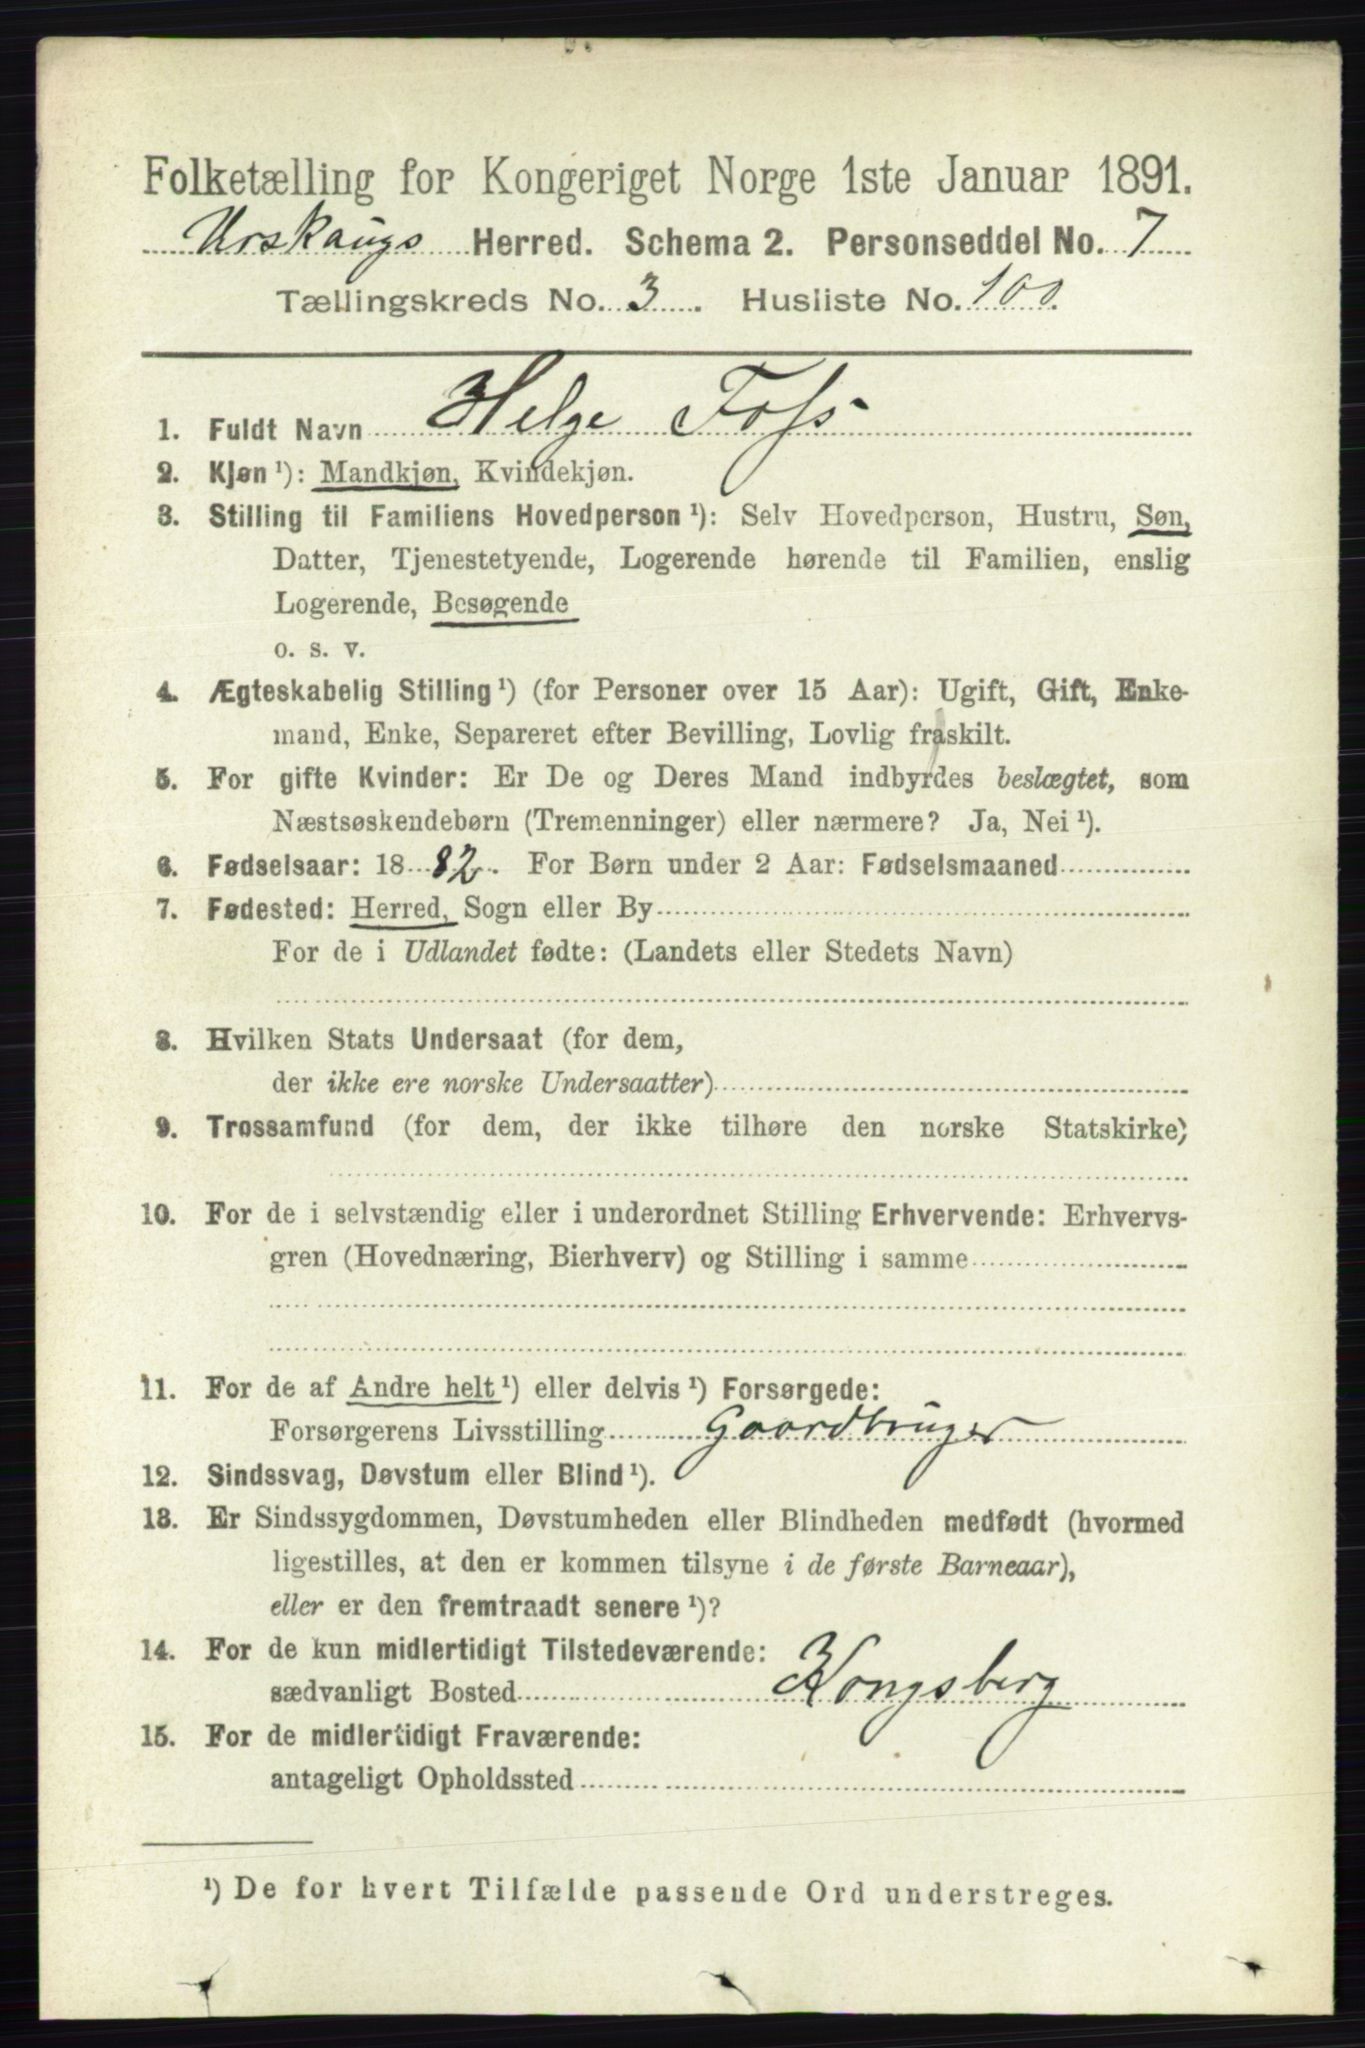 Folketælling for Kongeriget Norge 1ste Januar 1891.
Urskaugs Herred. Schema 2. Personseddel No. 7
Tællingskreds No. 3. Husliste No. 100.
1. Fuldt Navn Helge Foss
2. Kjøn ¹): Mandkjøn, Kvindekjøn.
3. Stilling til Familiens Hovedperson ¹): Selv Hovedperson, Hustru, Søn,
Datter, Tjenestetyende, Logerende hørende til Familien, enslig
Logerende, Besøgende
o. s. v.
4. Ægteskabelig Stilling ¹) (for Personer over 15 Aar): Ugift, Gift, Enke-
mand, Enke, Separeret efter Bevilling, Lovlig fraskilt.
5. For gifte Kvinder: Er De og Deres Mand indbyrdes beslægtet, som
Næstsøskendebørn (Tremenninger) eller nærmere? Ja, Nei ¹).
6. Fødselsaar: 1882. For Børn under 2 Aar: Fødselsmaaned
7. Fødested: Herred, Sogn eller By
For de i Udlandet fødte: (Landets eller Stedets Navn)
8. Hvilken Stats Undersaat (for dem,
der ikke ere norske Undersaatter)
9. Trossamfund (for dem, der ikke tilhøre den norske Statskirke)
10. For de i selvstændig eller i underordnet Stilling Erhvervende: Erhvervs-
gren (Hovednæring, Bierhverv) og Stilling i samme
11. For de af Andre helt ¹) eller delvis ¹) Forsørgede:
Forsørgerens Livsstilling Gaardbruger
12. Sindssvag, Døvstum eller Blind ¹).
13. Er Sindssygdommen, Døvstumheden eller Blindheden medfødt (hvormed
ligestilles, at den er kommen tilsyne i de første Barneaar),
eller er den fremtraadt senere ¹)?
14. For de kun midlertidigt Tilstedeværende:
sædvanligt Bosted Kongsberg
15. For de midlertidigt Fraværende:
antageligt Opholdssted
¹) De for hvert Tilfælde passende Ord understreges.